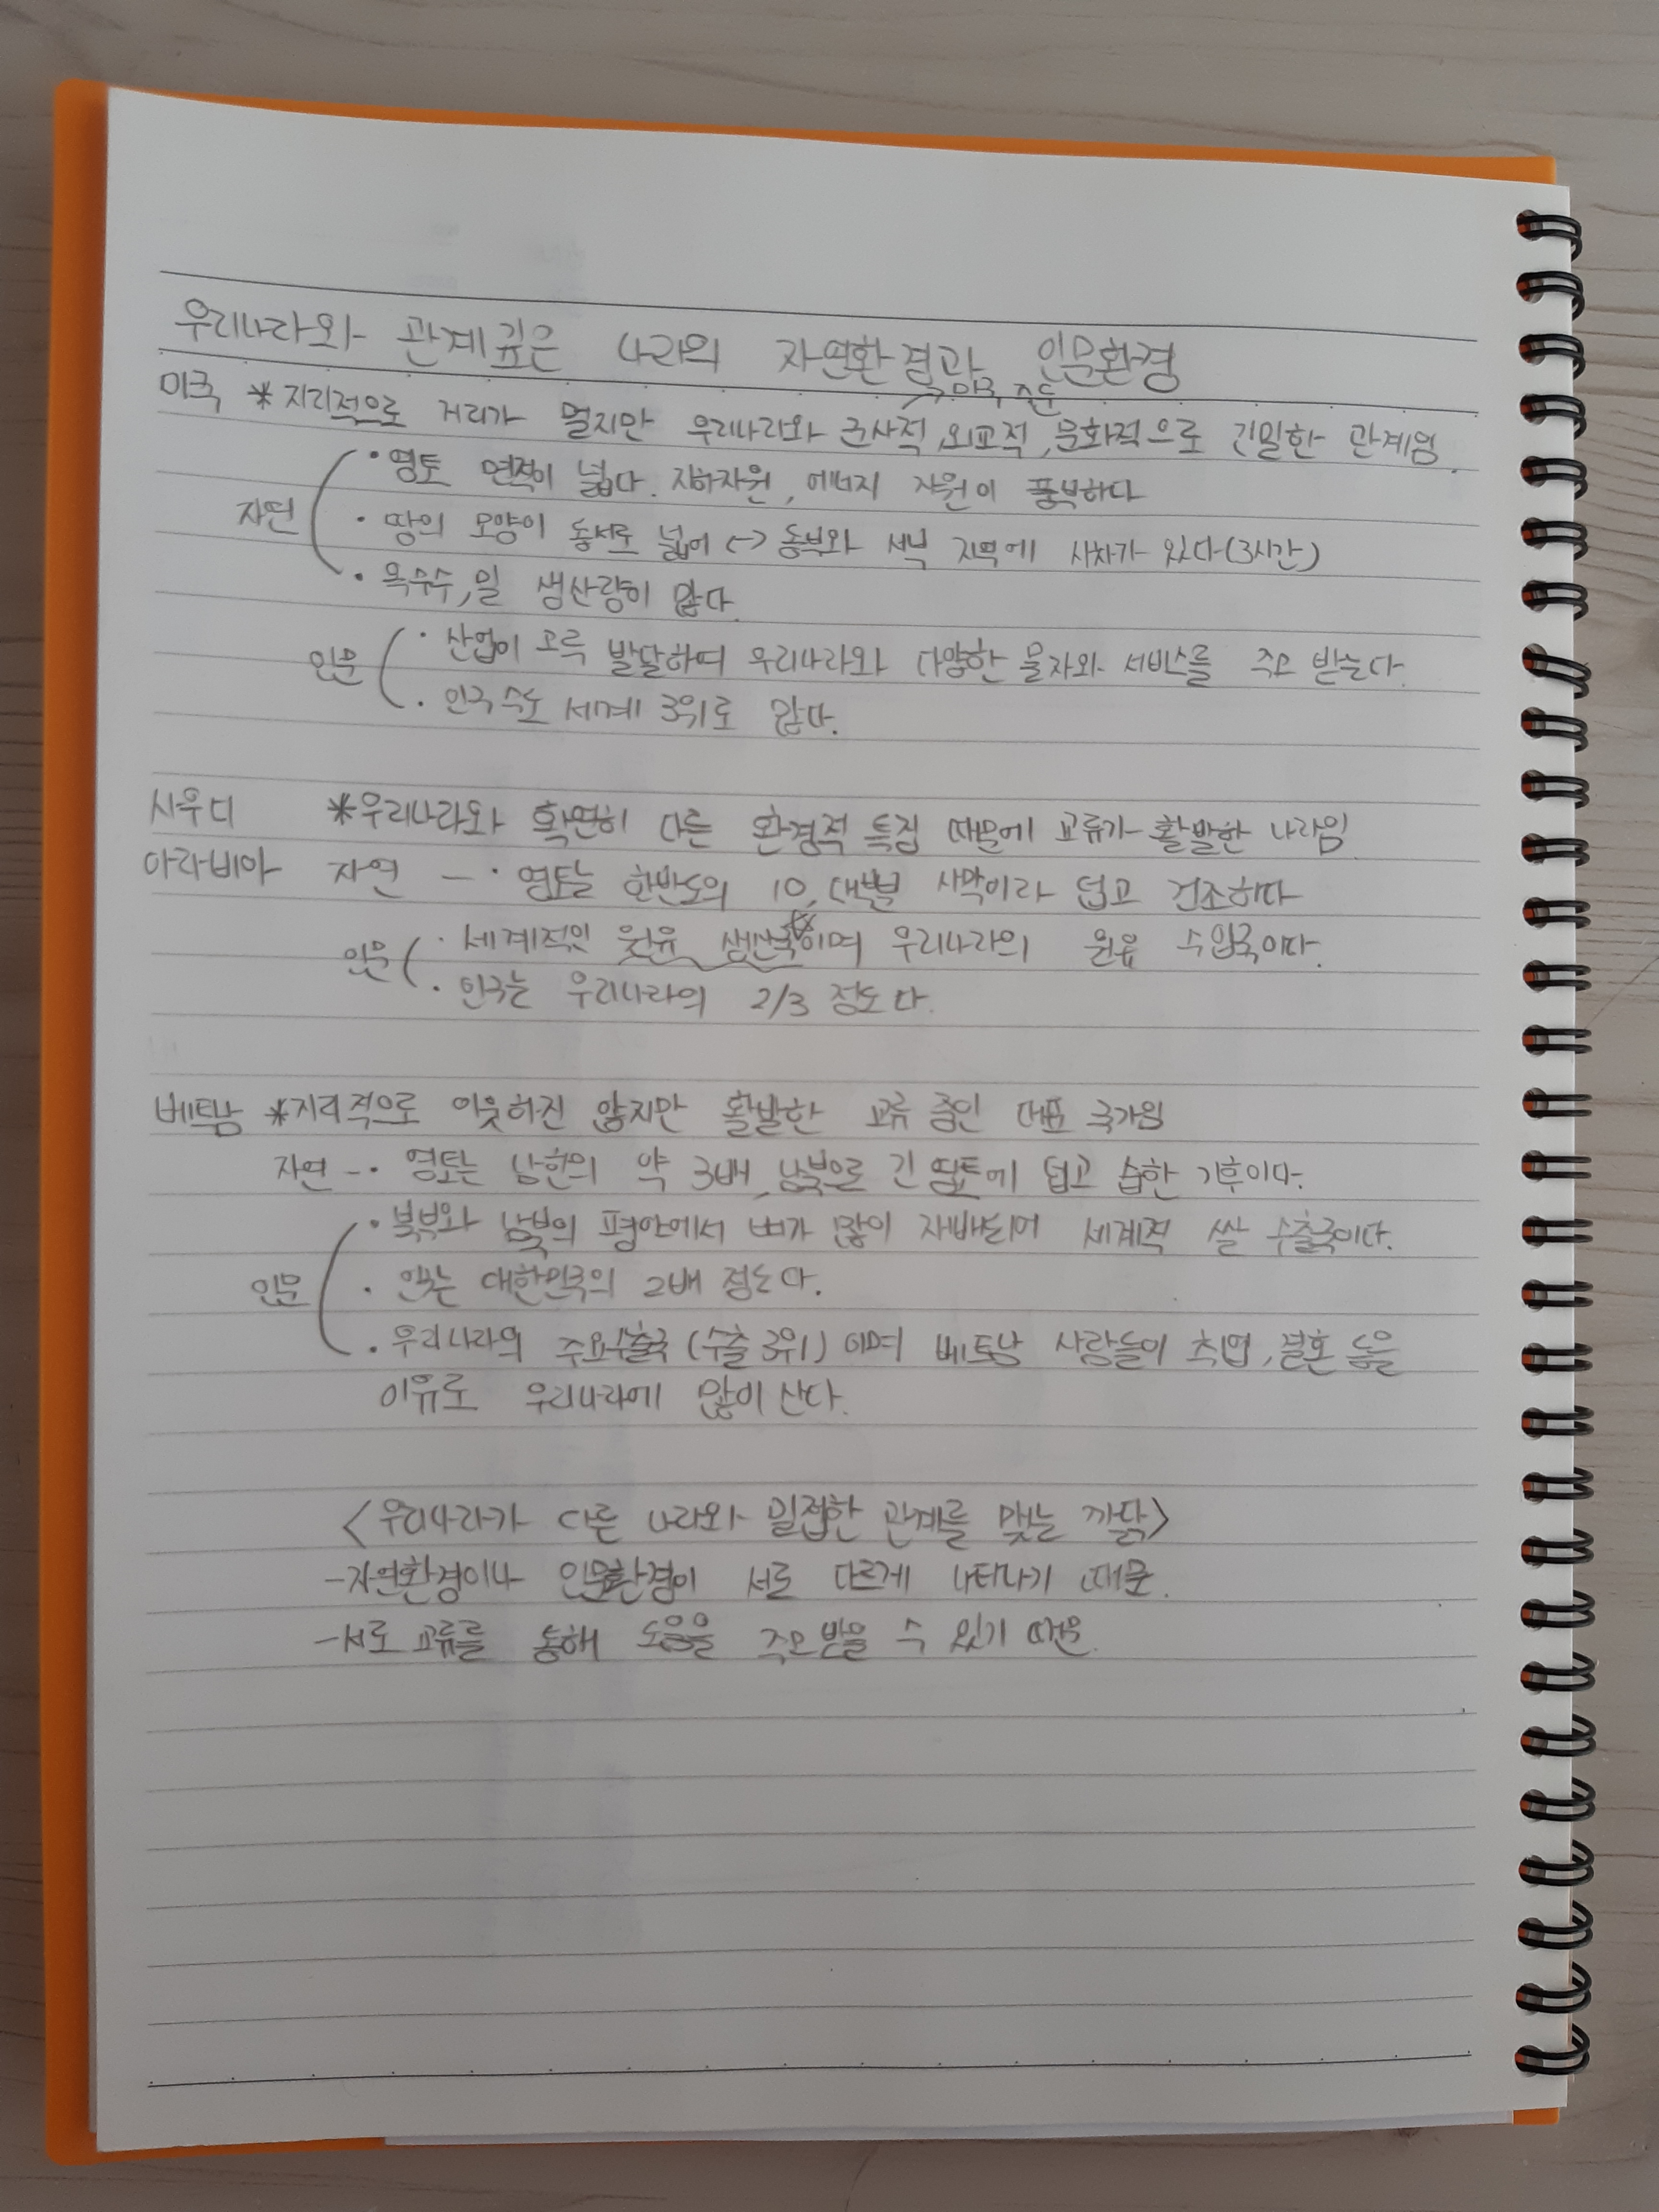 우리나라와 관계깊은 나라의 자연환경과 인문환경
미국 *지리적으로 거리가 멀지만 우리나라와 군사적, 외교적, 문화적으로 긴밀한 관계임.
자연
· 영토 면적이 넓다. 지하자원, 에너지 자원이 풍부하다
· 땅의 모양이 동서로 넓어 <-> 동부와 서부 지역에 시차가 있다(3시간)
· 옥수수, 밀 생산량이 많다.
인문
· 산업이 고루 발달하여 우리나라와 다양한 물자와 서비스를 주고 받는다.
· 인구 수도 세계 3위로 많다.
사우디 *우리나라와 확연히 다른 환경적 특징 때문에 교류가 활발한 나라임
아라비아 자연 - · 영토는 한반도의 10, 대부분 사막이라 덥고 건조하다
인문
· 세계적인 원유 생산국이며 우리나라의 원유 수입국이다.
· 인구는 우리나라의 2/3 정도다.
베트남 *지리적으로 이웃하진 않지만 활발한 교류 중인 대표 국가임
자연 - · 영토는 남한의 약 3배, 남북으로 긴 영토에 덥고 습한 기후이다.
인문
· 북부와 남부의 평야에서 벼가 많이 재배되어 세계적 쌀 수출국이다.
· 인구는 대한민국의 2배 정도다.
· 우리나라의 주요수출국 (수출 3위) 이며 베트남 사람들이 취업, 결혼 등을
이유로 우리나라에 많이 산다.
<우리나라가 다른 나라와 밀접한 관계를 맺는 까닭>
-자연환경이나 인문환경이 서로 다르게 나타나기 때문.
-서로 교류를 통해 도움을 주고 받을 수 있기 때문.